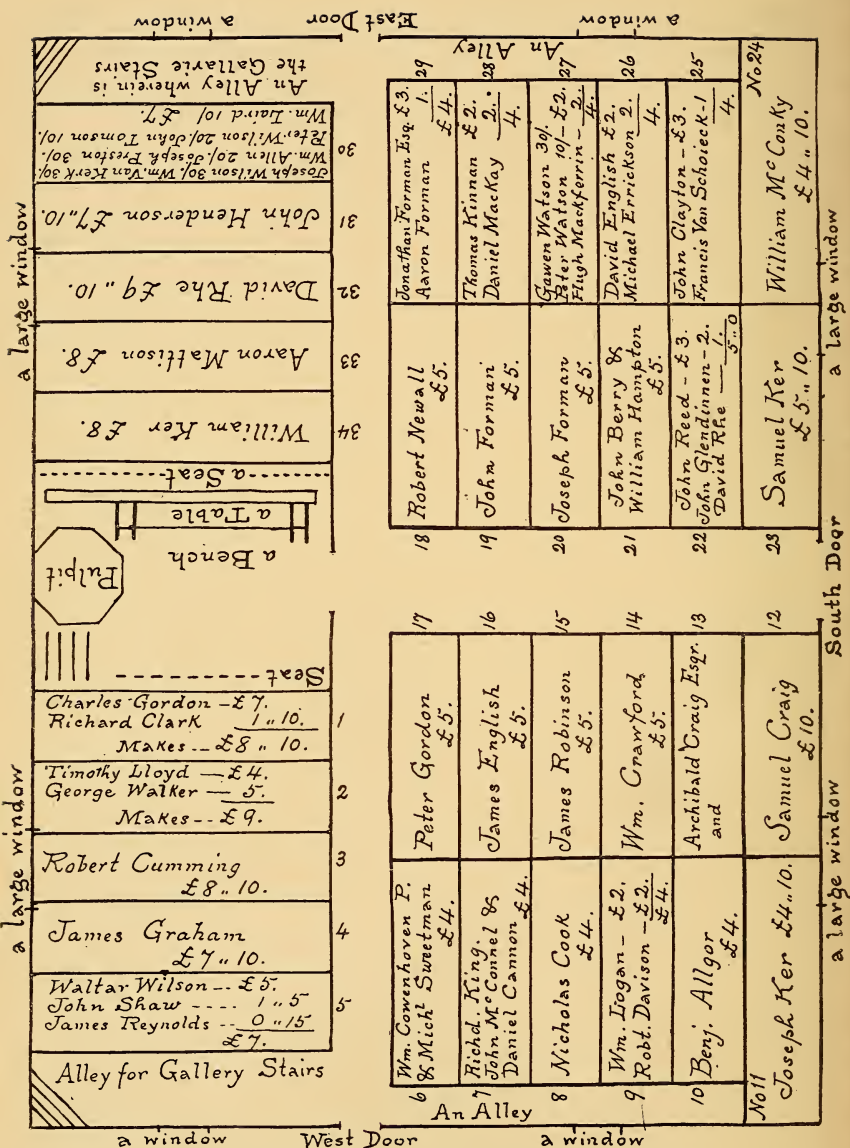 a window
East Door
a window
An Alley
An Alley wherein is
the Gallarie Stairs
30
Joseph Wilson 30/ Wm. Van Kerk 30/
Wm. Allen 20/ Joseph Preston 30/.
Peter Wilson 20/ John Tomson 10/.
Wm. Laird 10/ £7.
31
John Henderson £7,,10.
32
David Rhe £9,, 10.
33
Aaron Mattison £8.
34
William Ker £8.
a Seat
a Table
a Bench
Pulpit
Seat
a large window
Charles Gordon -£7.
Richard Clark 1,,10.
Makes -- £8,, 10.
1
Timothy Lloyd — £4.
George Walker — 5.
Makes -- £9.
2
Robert Cumming
£8,, 10.
3
James Graham
£7,,10.
4
Waltar Wilson -- £5.
John Shaw ---- 1,,5
James Reynolds -- 0,,15
£7.
5
Alley for Gallery Stairs
a large window
29
Jonathan Forman Esq. £3.
Aaron Forman 1.
£4.
28
Thomas Kinnan £2.
Daniel MacKay 2.
4.
27
Gawen Watson 30/.
Peter Watson 10/-£2.
Hugh Mackferrin - 2.
4.
26
David English £2.
Michael Errickson 2.
4.
25
John Clayton - £3.
Francis Van Schoieck-1
4.
No 24
William McConky
£4,, 10.
18
Robert Newall
£5.
19
John Forman
£5.
20
Joseph Forman
£5.
21
John Berry &
William Hampton
£5.
22
John Reed - £3.
John Glendinnen - 2.
David Rhe — 1.
5,,0
23
Samuel Ker
£5,,10.
a large window
South Door
17
Peter Gordon
£5.
16
James English
£5.
15
James Robinson
£5.
14
Wm. Crawford
£5.
13
Archibald Craig Esqr.
and
12
Samuel Craig
£10.
6
Wm. Cowenhoven P.
& Michl Sweetman
£4.
7
Richd. King.
John McConnel &
Daniel Cannon £4.
8
Nicholas Cook
£4.
9
Wm. Logan - £2.
Robt. Davison - £2.
£4.
10
Benj. Allgor
£4.
No 11
Joseph Ker £4,,10.
a large window
An Alley
a window
West Door
a window